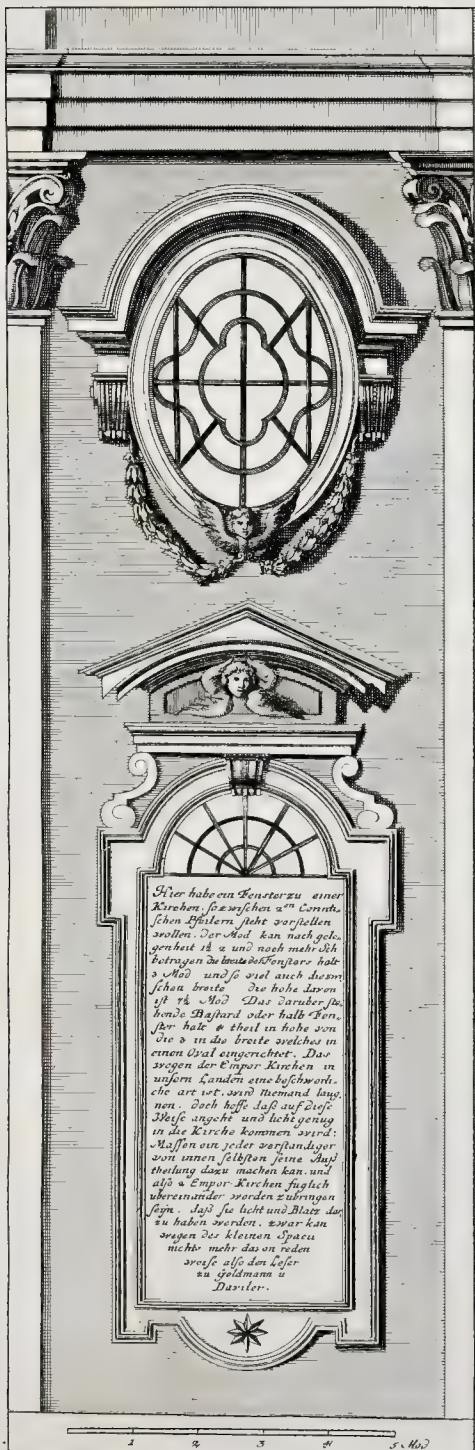 Hier habe ein Fenster zu einer
Kirchen. so zwischen 2en Corinti,
schen Pfeilern steht vorstellen
wollen. Der Mod kan nach gele,
genheit 1½ 2 und noch mehr Sch
betragen die breite des Fensters halt
3 Mod und so viel auch die zwi
schen breite die hohe davon
ist 7½ Mod Das daruber ste,
hende Bastard oder halb Fen,
ster halt 4 theil in hohe von
die 3 in die breite welches in
einen Oval eingerichtet. Das
wegen der Empor Kirchen in
unsern Landen eine beschworli,
che art ist, wird Niemand laug,
nen. doch hoffe daß auf Diese
Weise angeht und licht genug
in die Kirche kommen wird;
Massen ein jeder verstandiger
von innen selbsten seine Auß
theilung dazu machen kan. und
also 2 Empor-Kirchen fuglich
ubereinander worden zubringen
seyn. daß sie licht und Blatz da,
zu haben werden. zwar kan
wegen des kleinen Spacii
nichts mehr davon reden
weise also den Leser
zu Goldmann u
Daviler.
1 2 3 4 5 Mod